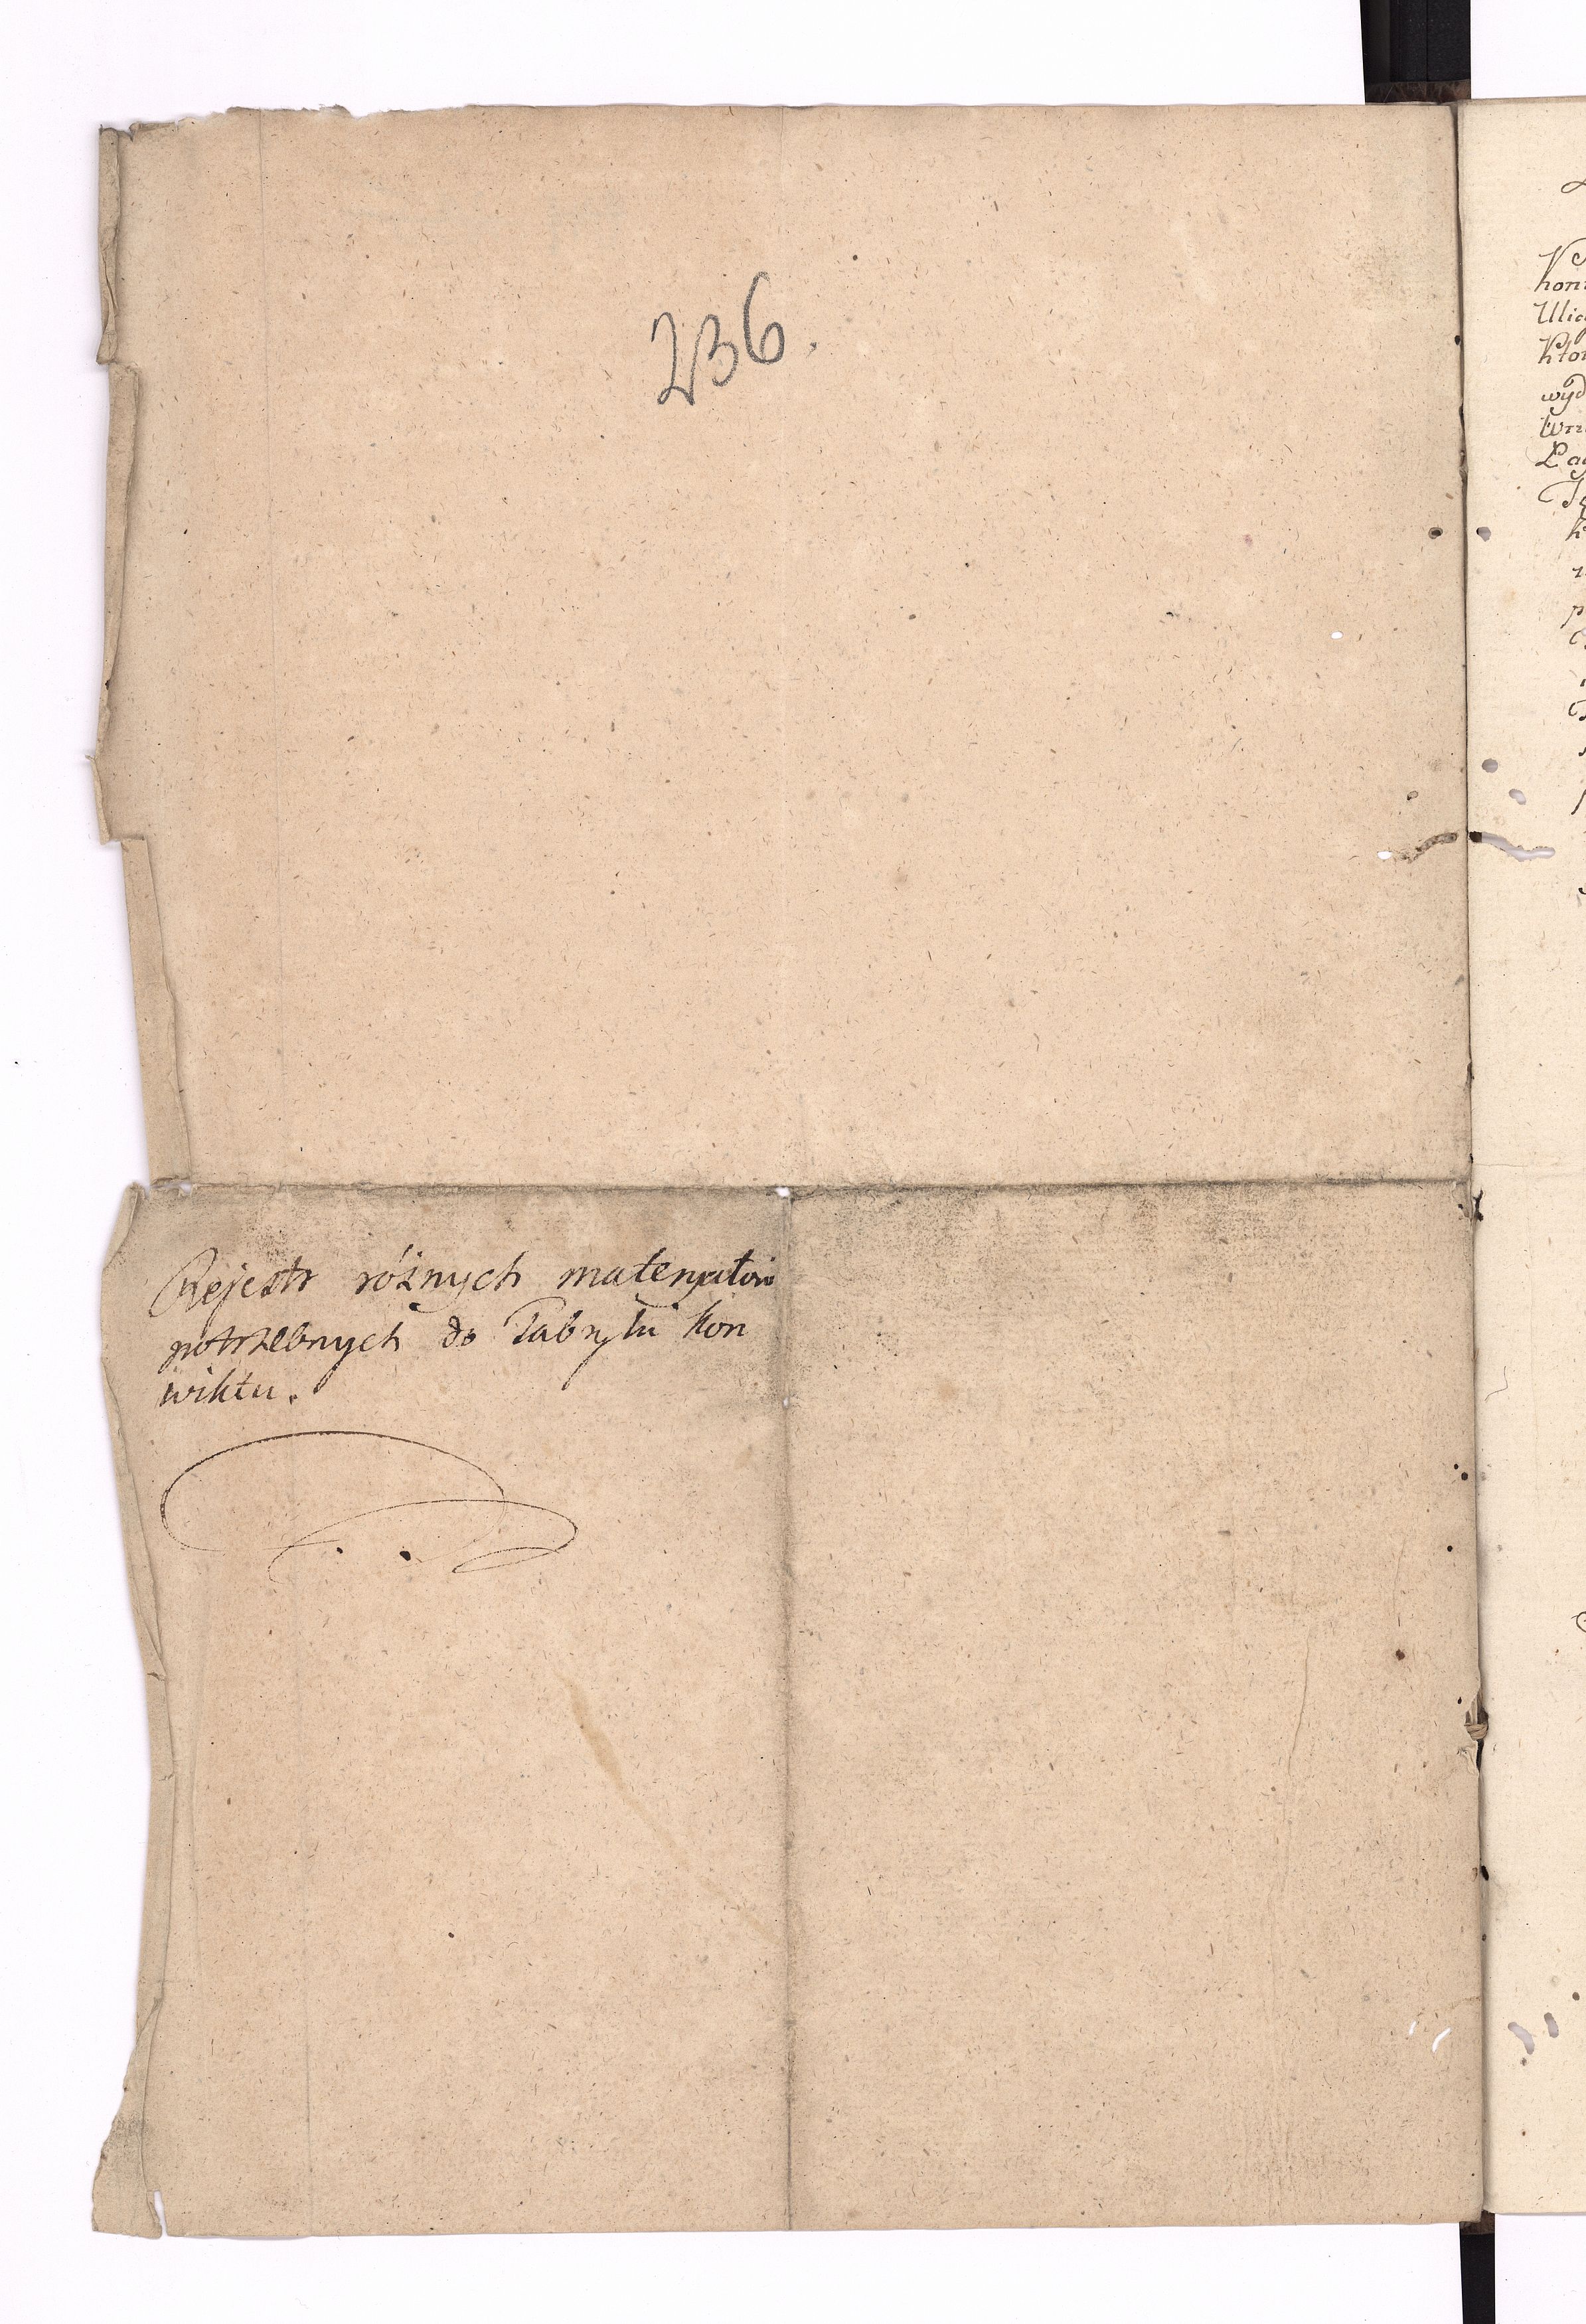 236.
Rejestr różnych materyałow
potrzebnych do Fabryki Kon
wiktu.